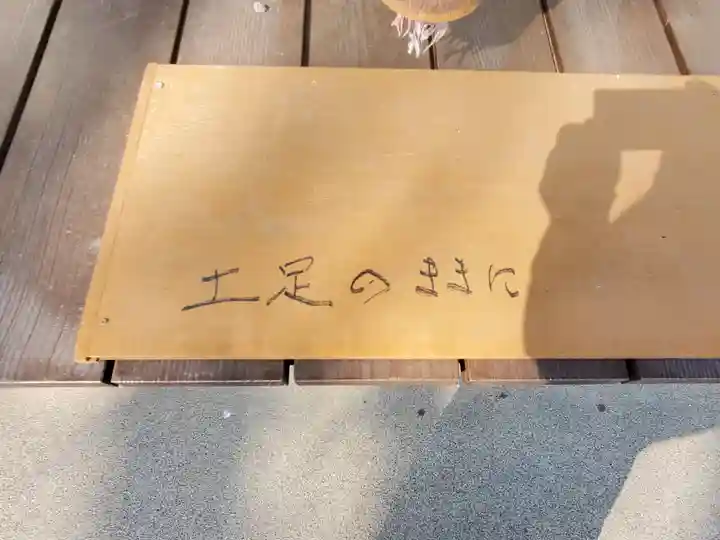 土足のままに